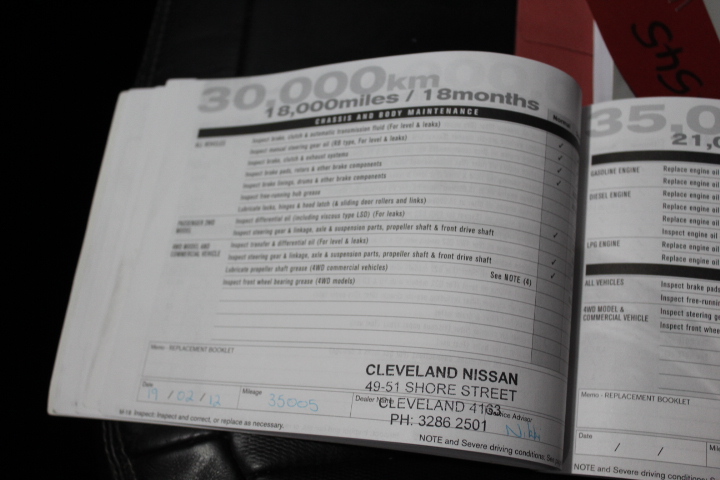 30,000km
18,000miles / 18months
CHASSIS AND BODY MAINTENANCE
ALL VEHICLES
Inspect brake, clutch & automatic transmission fluid (For level & leaks)
Inspect manual steering gear oil (RB type, For level & leaks) ✓
Inspect brake, clutch & exhaust systems ✓
Inspect brake pads, rotors & other brake components ✓
Inspect brake linings, drums & other brake components ✓
Inspect free-running hub grease
Lubricate locks, hinges & hood latch (& sliding door rollers and links)
PASSENGER 2WD MODEL
Inspect differential oil (including viscous type LSD) (For leaks)
Inspect steering gear & linkage, axle & suspension parts, propeller shaft & front drive shaft ✓
4WD MODEL AND COMMERCIAL VEHICLE
Inspect transfer & differential oil (For level & leaks)
Inspect steering gear & linkage, axle & suspension parts, propeller shaft & front drive shaft ✓
Lubricate propeller shaft grease (4WD commercial vehicles) ✓
Inspect front wheel bearing grease (4WD models) See NOTE (4)
Memo - REPLACEMENT BOOKLET
CLEVELAND NISSAN
49-51 SHORE STREET
CLEVELAND 4163
PH: 3286 2501
Date 19 / 02 / 12
Mileage 35005
Service Advisor
M-16 Inspect: Inspect and correct, or replace as necessary.
NOTE and Severe driving conditions:
545
35,0
21,0
GASOLINE ENGINE
Replace engine oil
Replace engine oil
DIESEL ENGINE
Replace engine oil
Replace engine oil
Replace engine oil
Inspect engine oil
LPG ENGINE
Replace engine oil
Replace engine oil
ALL VEHICLES
Inspect brake pads
Inspect free-runnin
4WD MODEL & COMMERCIAL VEHICLE
Inspect steering ge
Inspect front whee
Memo - REPLACEMENT BOOKLET
Date / /
NOTE and Severe driving